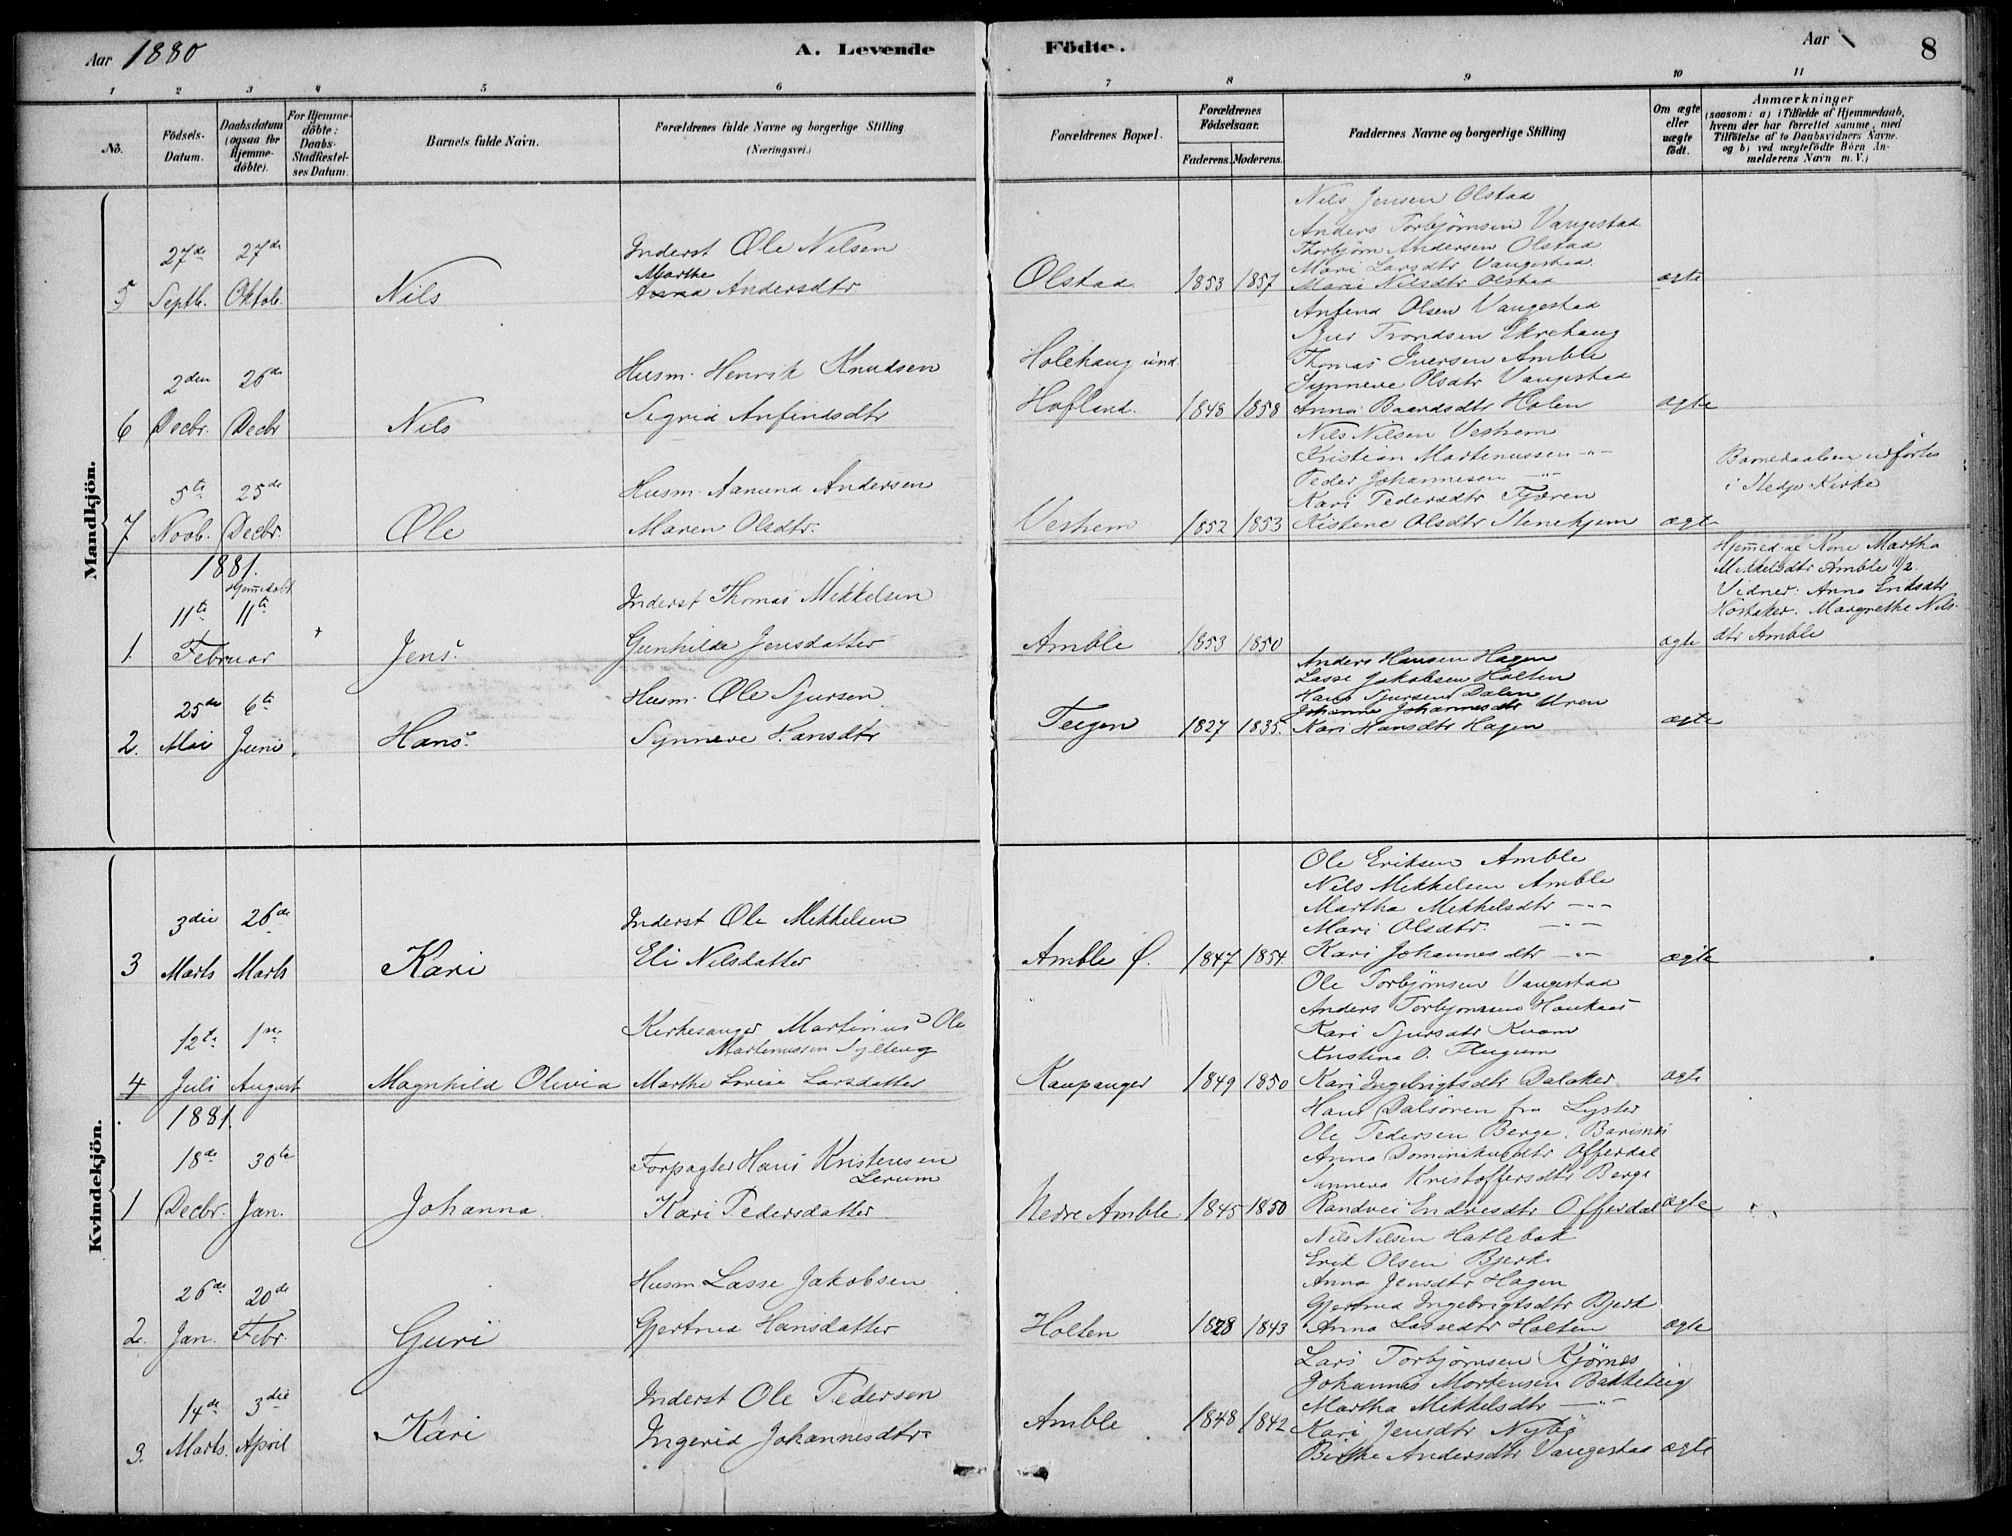 Aar 1880
A. Levende
Födte.
Aar
8
1 2 3 4 5 6 7 8 9 10 11
No.
Födsels-Datum.
Daabsdatum (ogsaa for Hjemmedöbte).
For Hjemmedöbte: Daabs-Stadfæstelses Datum.
Barnets fulde Navn.
Forældrenes fulde Navne og borgerlige Stilling (Næringsvei.)
Forældrenes Bopæl.
Forældrenes Födselsaar.
Faderens. Moderens.
Faddernes Navne og borgerlige Stilling
Om ægte eller uægte födt.
Anmærkninger (saasom: a) i Tilfælde af Hjemmedaab, hvem der har forrettet samme, med Tilföielse af to Daabsvidners Navne. og b) ved uægtefödte Börn Anmelderens Navn m. V.)
Mandkjön.
5 27de Septb. 27de Oktob.
Nils
Inderst Ole Nilsen
Marthe
Anna Andersdtr
Olstad 1853 1857
Nils Jensen Olstad
Anders Torbjørnsen Vangestad
Thorbjørn Andersen Olstad
Mari Larsdtr Vangestad
Marie Nilsdtr Olstad
ægte
6 2den Decbr. 26de Decbr
Nils
Husm. Henrik Knudsen
Sigrid Anfindsdtr
Holehaug und. Hofland. 1848 1858
Anfind Olsen Vangestad
Sjur Trondsen Ekrehaug
Thomas Iversen Amble
Synneve Olsdtr Vangestad
Anna Baardsdtr Holen
ægte
7 5te Novb. 25de Decbr.
Ole
Husm. Aamund Andersen
Maren Olsdtr.
Veshem 1852 1853
Nils Nilsen Veshem
Kristian Martenussen -"-
Peder Johannesen -"-
Kari Pedersdtr Fjæren
Kistene Olsdtr Stenehjem
ægte
Barnedaaben udførtes
i Stedje Kirke
1881.
Hjemmedøbt
1. 11te 11te Februar
Jens.
Inderst Thomas Mikkelsen
Gunhilde Jensdatter
Amble 1853 1850
ægte
Hjemmed. af Kone Martha
Mikkelsdtr Amble 11/2.
Vidner: Anna Eriksdtr
Hostaker. Margrethe Nils-
dtr Amble
2. 25de Mai 6te Juni
Hans.
Husm. Ole Sjursen
Synneve Hansdtr
Teigen 1827 1835.
Anders Hansen Hagen
Lasse Jakobsen Holten
Hans Sjursen Dalen
Johanne Johannesdtr Uren
Kari Hansdtr Hagen
ægte
Kvindekjön.
3 3die Marts 26de Marts
Kari
Inderst Ole Mikkelsen
Eli Nilsdatter
Amble Ø. 1847 1854.
Ole Eriksen Amble
Nils Mikkelsen Amble
Martha Mikkelsdtr -"-
Mari Olsdtr. -"-
Kari Johannesdtr -"-
ægte
4 12te Juli 1ste August
Magnhild Olivia
Kirkesanger Martinus Ole
Martenussen Sylteug
Marthe Lovise Larsdatter
Kaupanger 1849 1850
Ole Torbjørnsen Vangestad
Anders Torbjørnsen Haukaas
Kari Sjursdtr Kvam
Kristina O. Flugum
Kari Ingebrigtsdtr Dalaker.
ægte
1881.
1 18de Decbr. 30te Jan.
Johanna
Forpagter Hans Kristensen
Lerum
Kari Pedersdatter
Nedre Amble 1845 1850
Hans Dalsøren fra Lyster
Ole Pedersen Berge, Barsnes
Anna Dominikusdtr Offerdal
Sunneva Kristoffersdtr Berge
Randvei Endresdtr Offerdal
ægte
2. 26de Jan. 20de Febr.
Guri
Husm. Lasse Jakobsen
Gjertrud Hansdatter
Holten 1828 1843
Nils Nilsen Hatlebak
Erik Olsen Bjerk
Anna Jensdtr Hagen
Gjertrud Ingebrigtsdtr Bjerk
Anna Lassedtr Holten
ægte
3. 14de Marts. 3die April
Kari
Inderst Ole Pedersen
Ingerid Johannesdtr
Amble 1848 1842
Lars Torbjørnsen Kjørnes
Johannes Mortensen Bakketeig
Martha Mikkelsdtr -"-
Kari Jensdtr Nybø
Birthe Andersdtr Vangestad
ægte